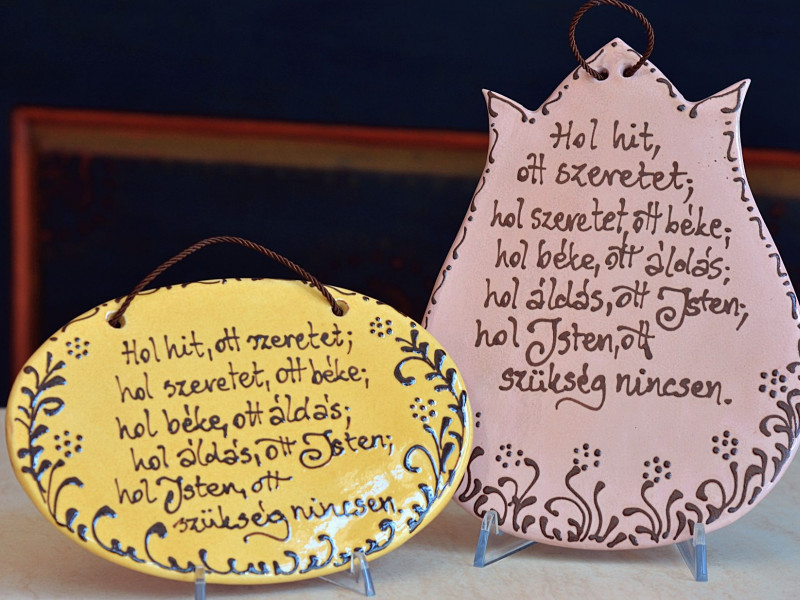 Hol hit, ott szeretet;
hol szeretet, ott béke;
hol béke, ott áldás;
hol áldás, ott Isten;
hol Isten, ott
szükség nincsen.
Hol hit,
ott szeretet;
hol szeretet, ott béke;
hol béke, ott áldás;
hol áldás, ott Isten;
hol Isten, ott
szükség nincsen.